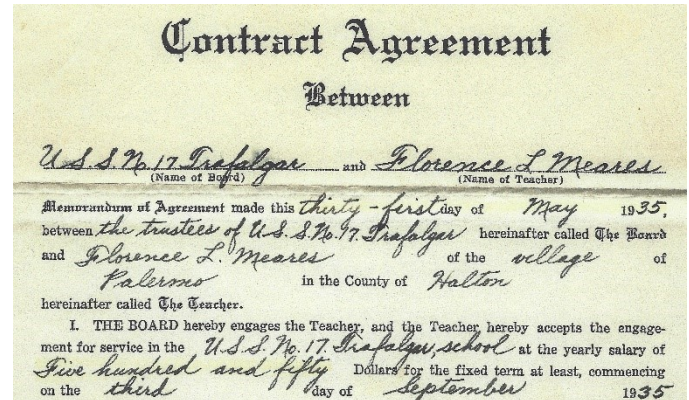 Contract Agreement
Between
U.S.S.No.17 Trafalgar and Florence L Meares
(Name of Board) (Name of Teacher)
Memorandum of Agreement made this thirty-first day of May 1935,
between the trustees of U.S.S.No.17. Trafalgar hereinafter called The Board
and Florence L. Meares of the village of
Palermo in the County of Halton
hereinafter called The Teacher.
I. THE BOARD hereby engages the Teacher, and the Teacher hereby accepts the engage-
ment for service in the U.S.S.No.17. Trafalgar, school at the yearly salary of
Five hundred and fifty Dollars for the fixed term at least, commencing
on the third day of September 1935